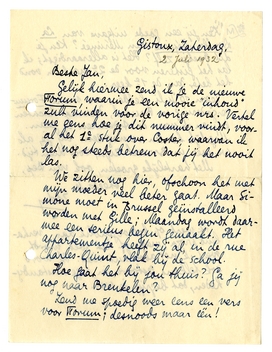 Gistoux, Zaterdag,
2 Juli 1932
Beste Jan,
Gelijk hiermee zend ik je de nieuwe
Forum, waarin je een mooie "inhoud"
zult vinden voor de vorige nrs. Vertel
me eens hoe jij dit nummer vindt, voor-
al het 1e stuk over Coster, waarvan ik
nog steeds betreur dat jij het nooit
las.
We zitten nog hier, ofschoon het met
mijn moeder veel beter gaat. Maar Si-
mone moet in Brussel geïnstalleerd
worden met Gille; Maandag wordt daar-
mee een serieus begin gemaakt. Het
appartementje heeft zij al, in de rue
Charles-Quint, vlak bij de school.
Hoe gaat het bij jou thuis? Ga jij
nog naar Breukelen?
Zend me spoedig weer eens een vers
voor Forum; desnoods maar één!